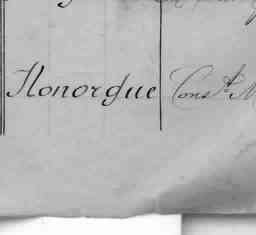 Honordue Const. M